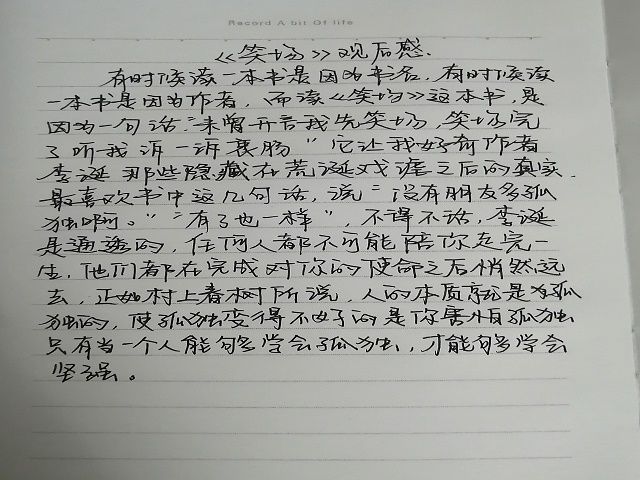 Record A bit Of life
《笑场》观后感.
有时候读一本书是因为书名,有时候读
一本书是因为作者,而读《笑场》这本书,是
因为一句话:"未曾开言我先笑场,笑场完
了听我诉一诉衷肠"它让我好奇作者
李诞那些隐藏在荒诞戏谑之后的真家.
最喜欢书中这几句话,说:"没有朋友多孤
独啊。""有了也一样",不得不话,李诞
是通透的,任何人都不可能陪你走完一
生,他们都在完成对你的使命之后悄然远
去,正如村上春树所说,人的本质就是孤
独的,使孤独变得不好的是你害怕孤独
只有当一个人能够学会孤独,才能够学会
坚强。